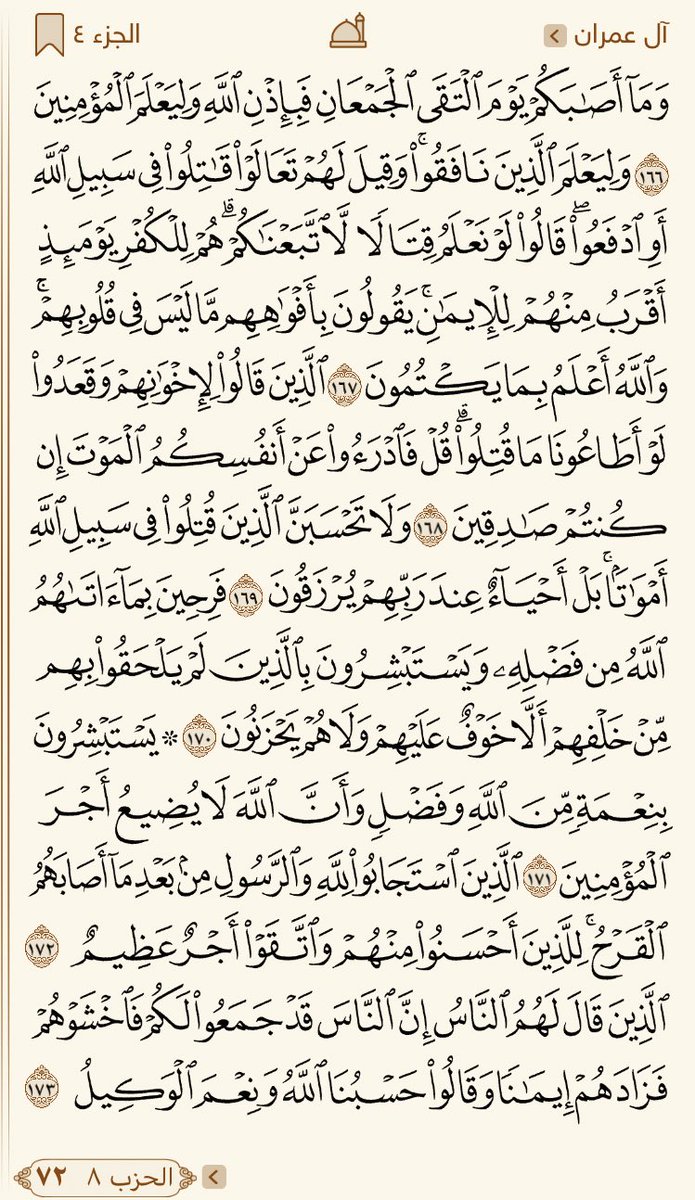 آل عمران الجزء ٤
وَمَآ أَصَٰبَكُمۡ يَوۡمَ ٱلۡتَقَى ٱلۡجَمۡعَانِ فَبِإِذۡنِ ٱللَّهِ وَلِيَعۡلَمَ ٱلۡمُؤۡمِنِينَ
١٦٦ وَلِيَعۡلَمَ ٱلَّذِينَ نَافَقُواْۚ وَقِيلَ لَهُمۡ تَعَالَوۡاْ قَٰتِلُواْ فِي سَبِيلِ ٱللَّهِ
أَوِ ٱدۡفَعُواْۖ قَالُواْ لَوۡ نَعۡلَمُ قِتَالٗا لَّٱتَّبَعۡنَٰكُمۡۗ هُمۡ لِلۡكُفۡرِ يَوۡمَئِذٍ
أَقۡرَبُ مِنۡهُمۡ لِلۡإِيمَٰنِۚ يَقُولُونَ بِأَفۡوَٰهِهِم مَّا لَيۡسَ فِي قُلُوبِهِمۡۚ
وَٱللَّهُ أَعۡلَمُ بِمَا يَكۡتُمُونَ ١٦٧ ٱلَّذِينَ قَالُواْ لِإِخۡوَٰنِهِمۡ وَقَعَدُواْ
لَوۡ أَطَاعُونَا مَا قُتِلُواْۗ قُلۡ فَٱدۡرَءُواْ عَنۡ أَنفُسِكُمُ ٱلۡمَوۡتَ إِن
كُنتُمۡ صَٰدِقِينَ ١٦٨ وَلَا تَحۡسَبَنَّ ٱلَّذِينَ قُتِلُواْ فِي سَبِيلِ ٱللَّهِ
أَمۡوَٰتَۢاۚ بَلۡ أَحۡيَآءٌ عِندَ رَبِّهِمۡ يُرۡزَقُونَ ١٦٩ فَرِحِينَ بِمَآ ءَاتَىٰهُمُ
ٱللَّهُ مِن فَضۡلِهِۦ وَيَسۡتَبۡشِرُونَ بِٱلَّذِينَ لَمۡ يَلۡحَقُواْ بِهِم
مِّنۡ خَلۡفِهِمۡ أَلَّا خَوۡفٌ عَلَيۡهِمۡ وَلَا هُمۡ يَحۡزَنُونَ ١٧٠ ۞ يَسۡتَبۡشِرُونَ
بِنِعۡمَةٖ مِّنَ ٱللَّهِ وَفَضۡلٖ وَأَنَّ ٱللَّهَ لَا يُضِيعُ أَجۡرَ
ٱلۡمُؤۡمِنِينَ ١٧١ ٱلَّذِينَ ٱسۡتَجَابُواْ لِلَّهِ وَٱلرَّسُولِ مِنۢ بَعۡدِ مَآ أَصَابَهُمُ
ٱلۡقَرۡحُۚ لِلَّذِينَ أَحۡسَنُواْ مِنۡهُمۡ وَٱتَّقَوۡاْ أَجۡرٌ عَظِيمٌ ١٧٢
ٱلَّذِينَ قَالَ لَهُمُ ٱلنَّاسُ إِنَّ ٱلنَّاسَ قَدۡ جَمَعُواْ لَكُمۡ فَٱخۡشَوۡهُمۡ
فَزَادَهُمۡ إِيمَٰنٗا وَقَالُواْ حَسۡبُنَا ٱللَّهُ وَنِعۡمَ ٱلۡوَكِيلُ ١٧٣
الحزب ٨ ٧٢